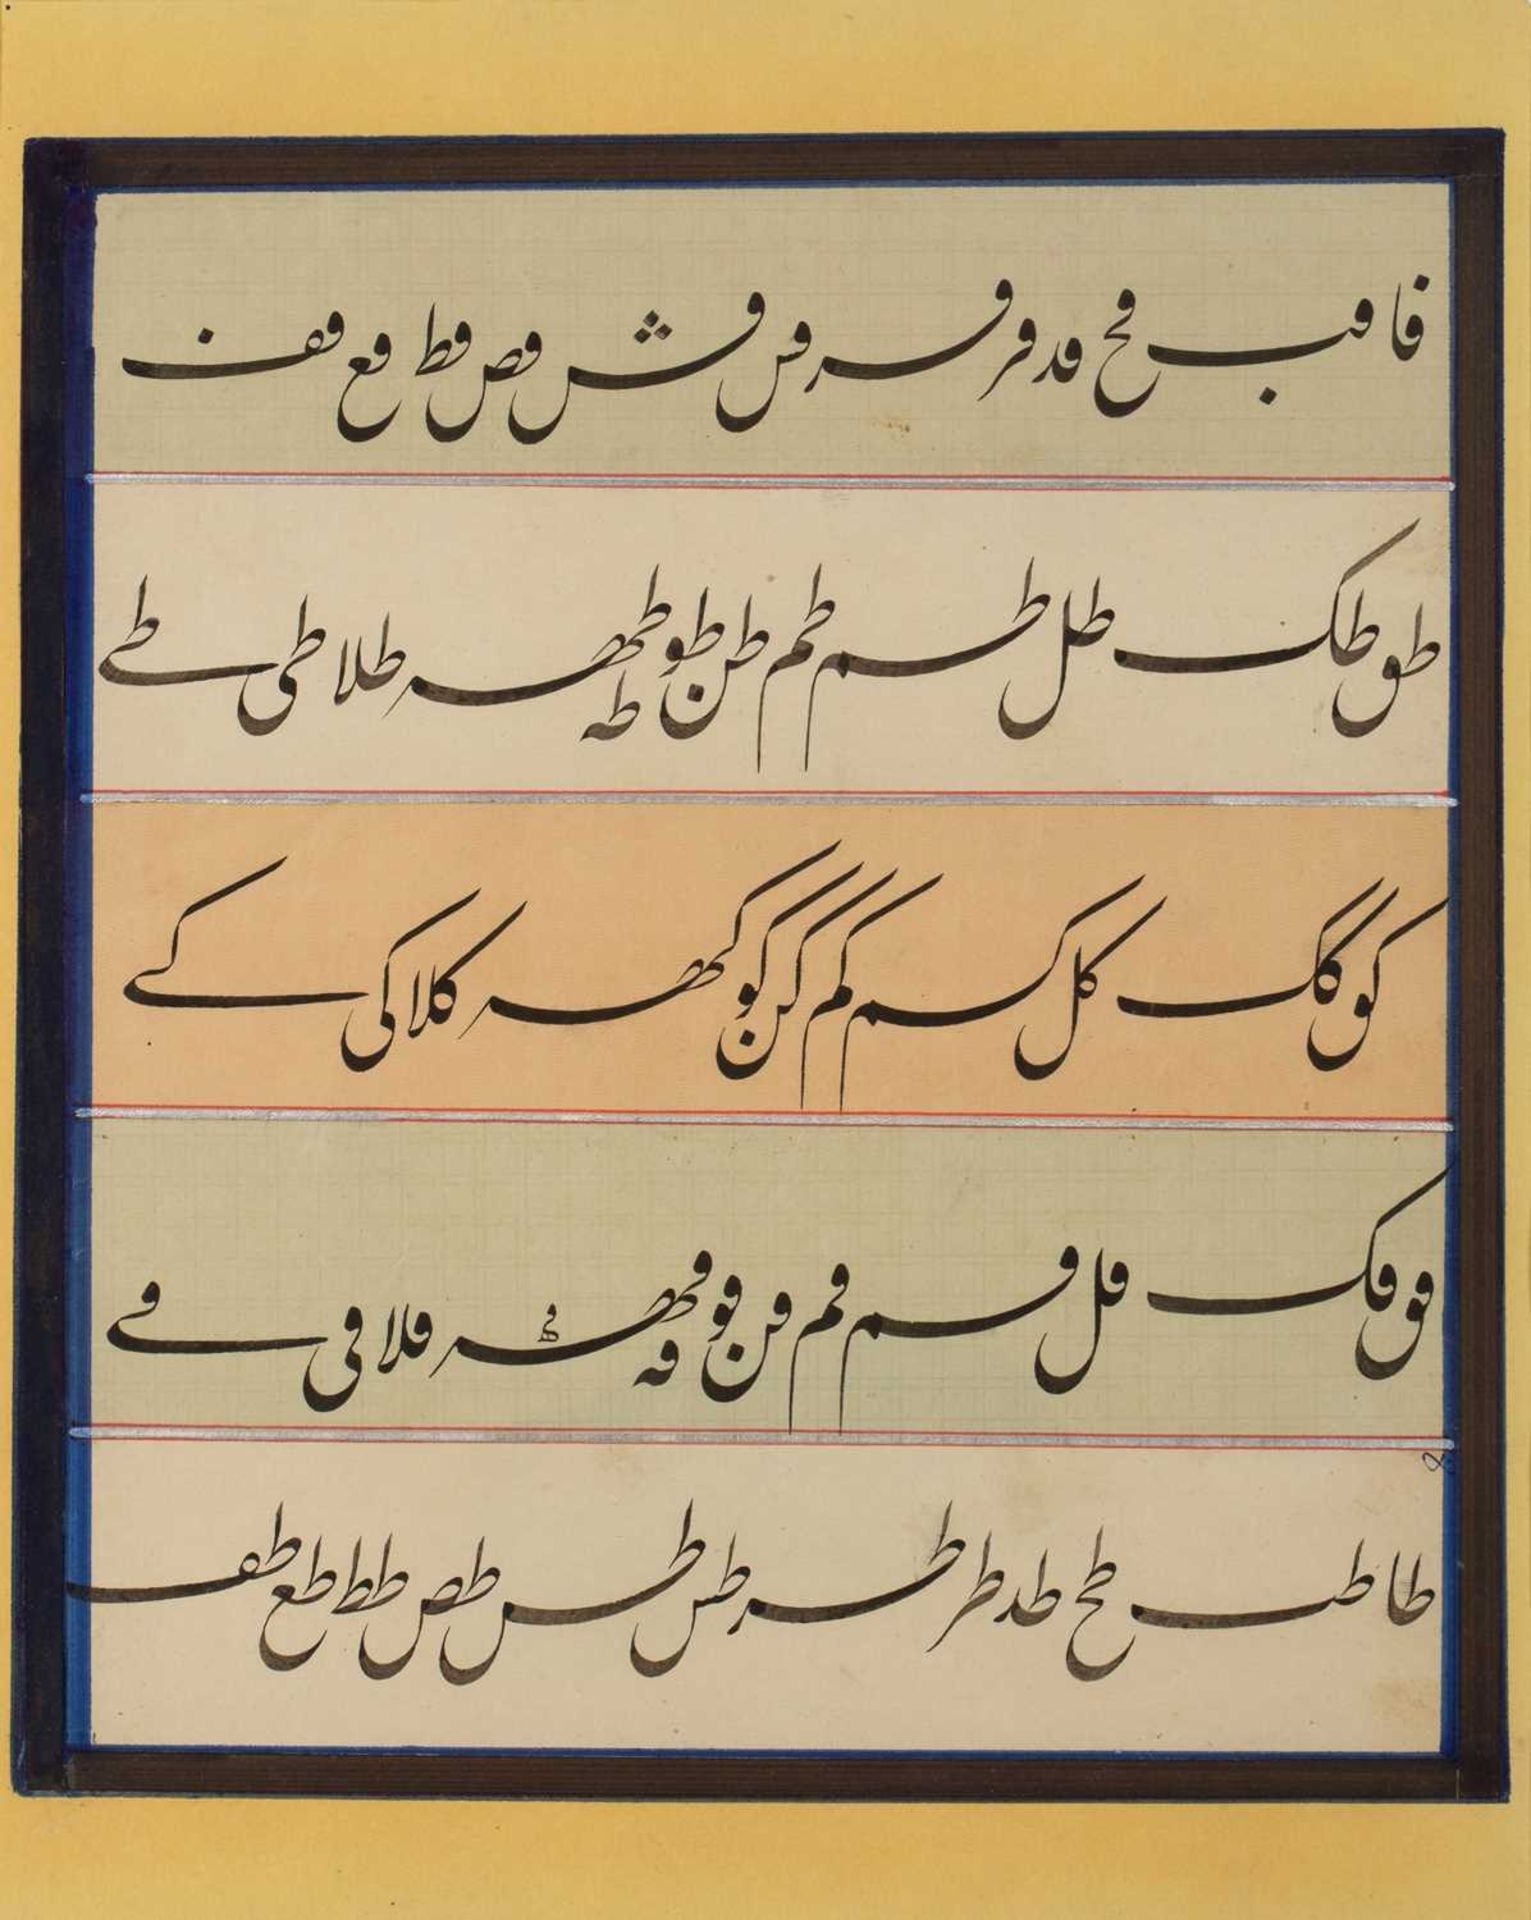 فا فب فح فد فر فسر فس فش فص فط فع فف
طق طک طل طسم طم طن طو طھسر طہ طلا طی طے
کو کک کل کسم کم کن کو کھسر کلا کی کے
فق فک فل فسم فم فن فو فھسر فہ فلا فی فے
طا طب طح طد طر طسر طس طس طص طط طع طف